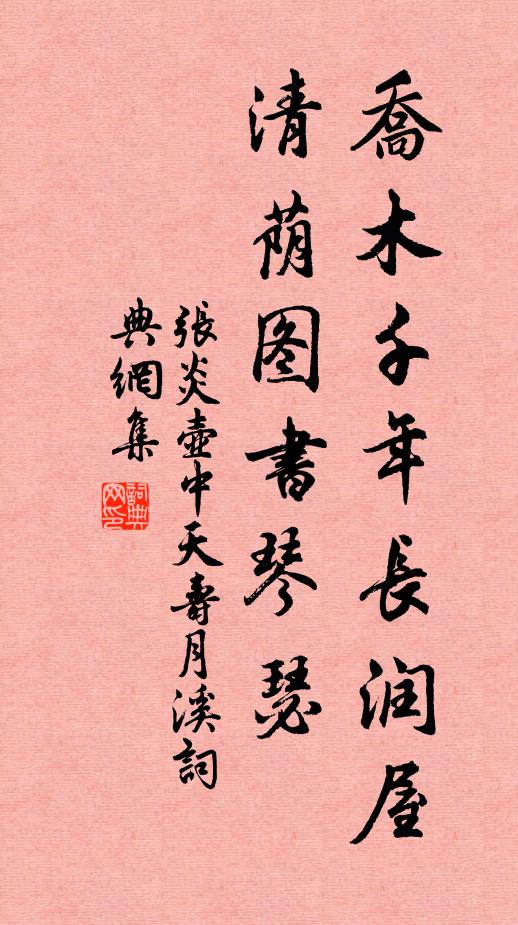 喬木千年長润屋
清荫图書琴瑟
張炎壷中天壽月溪詞
典網集
詞典
网印